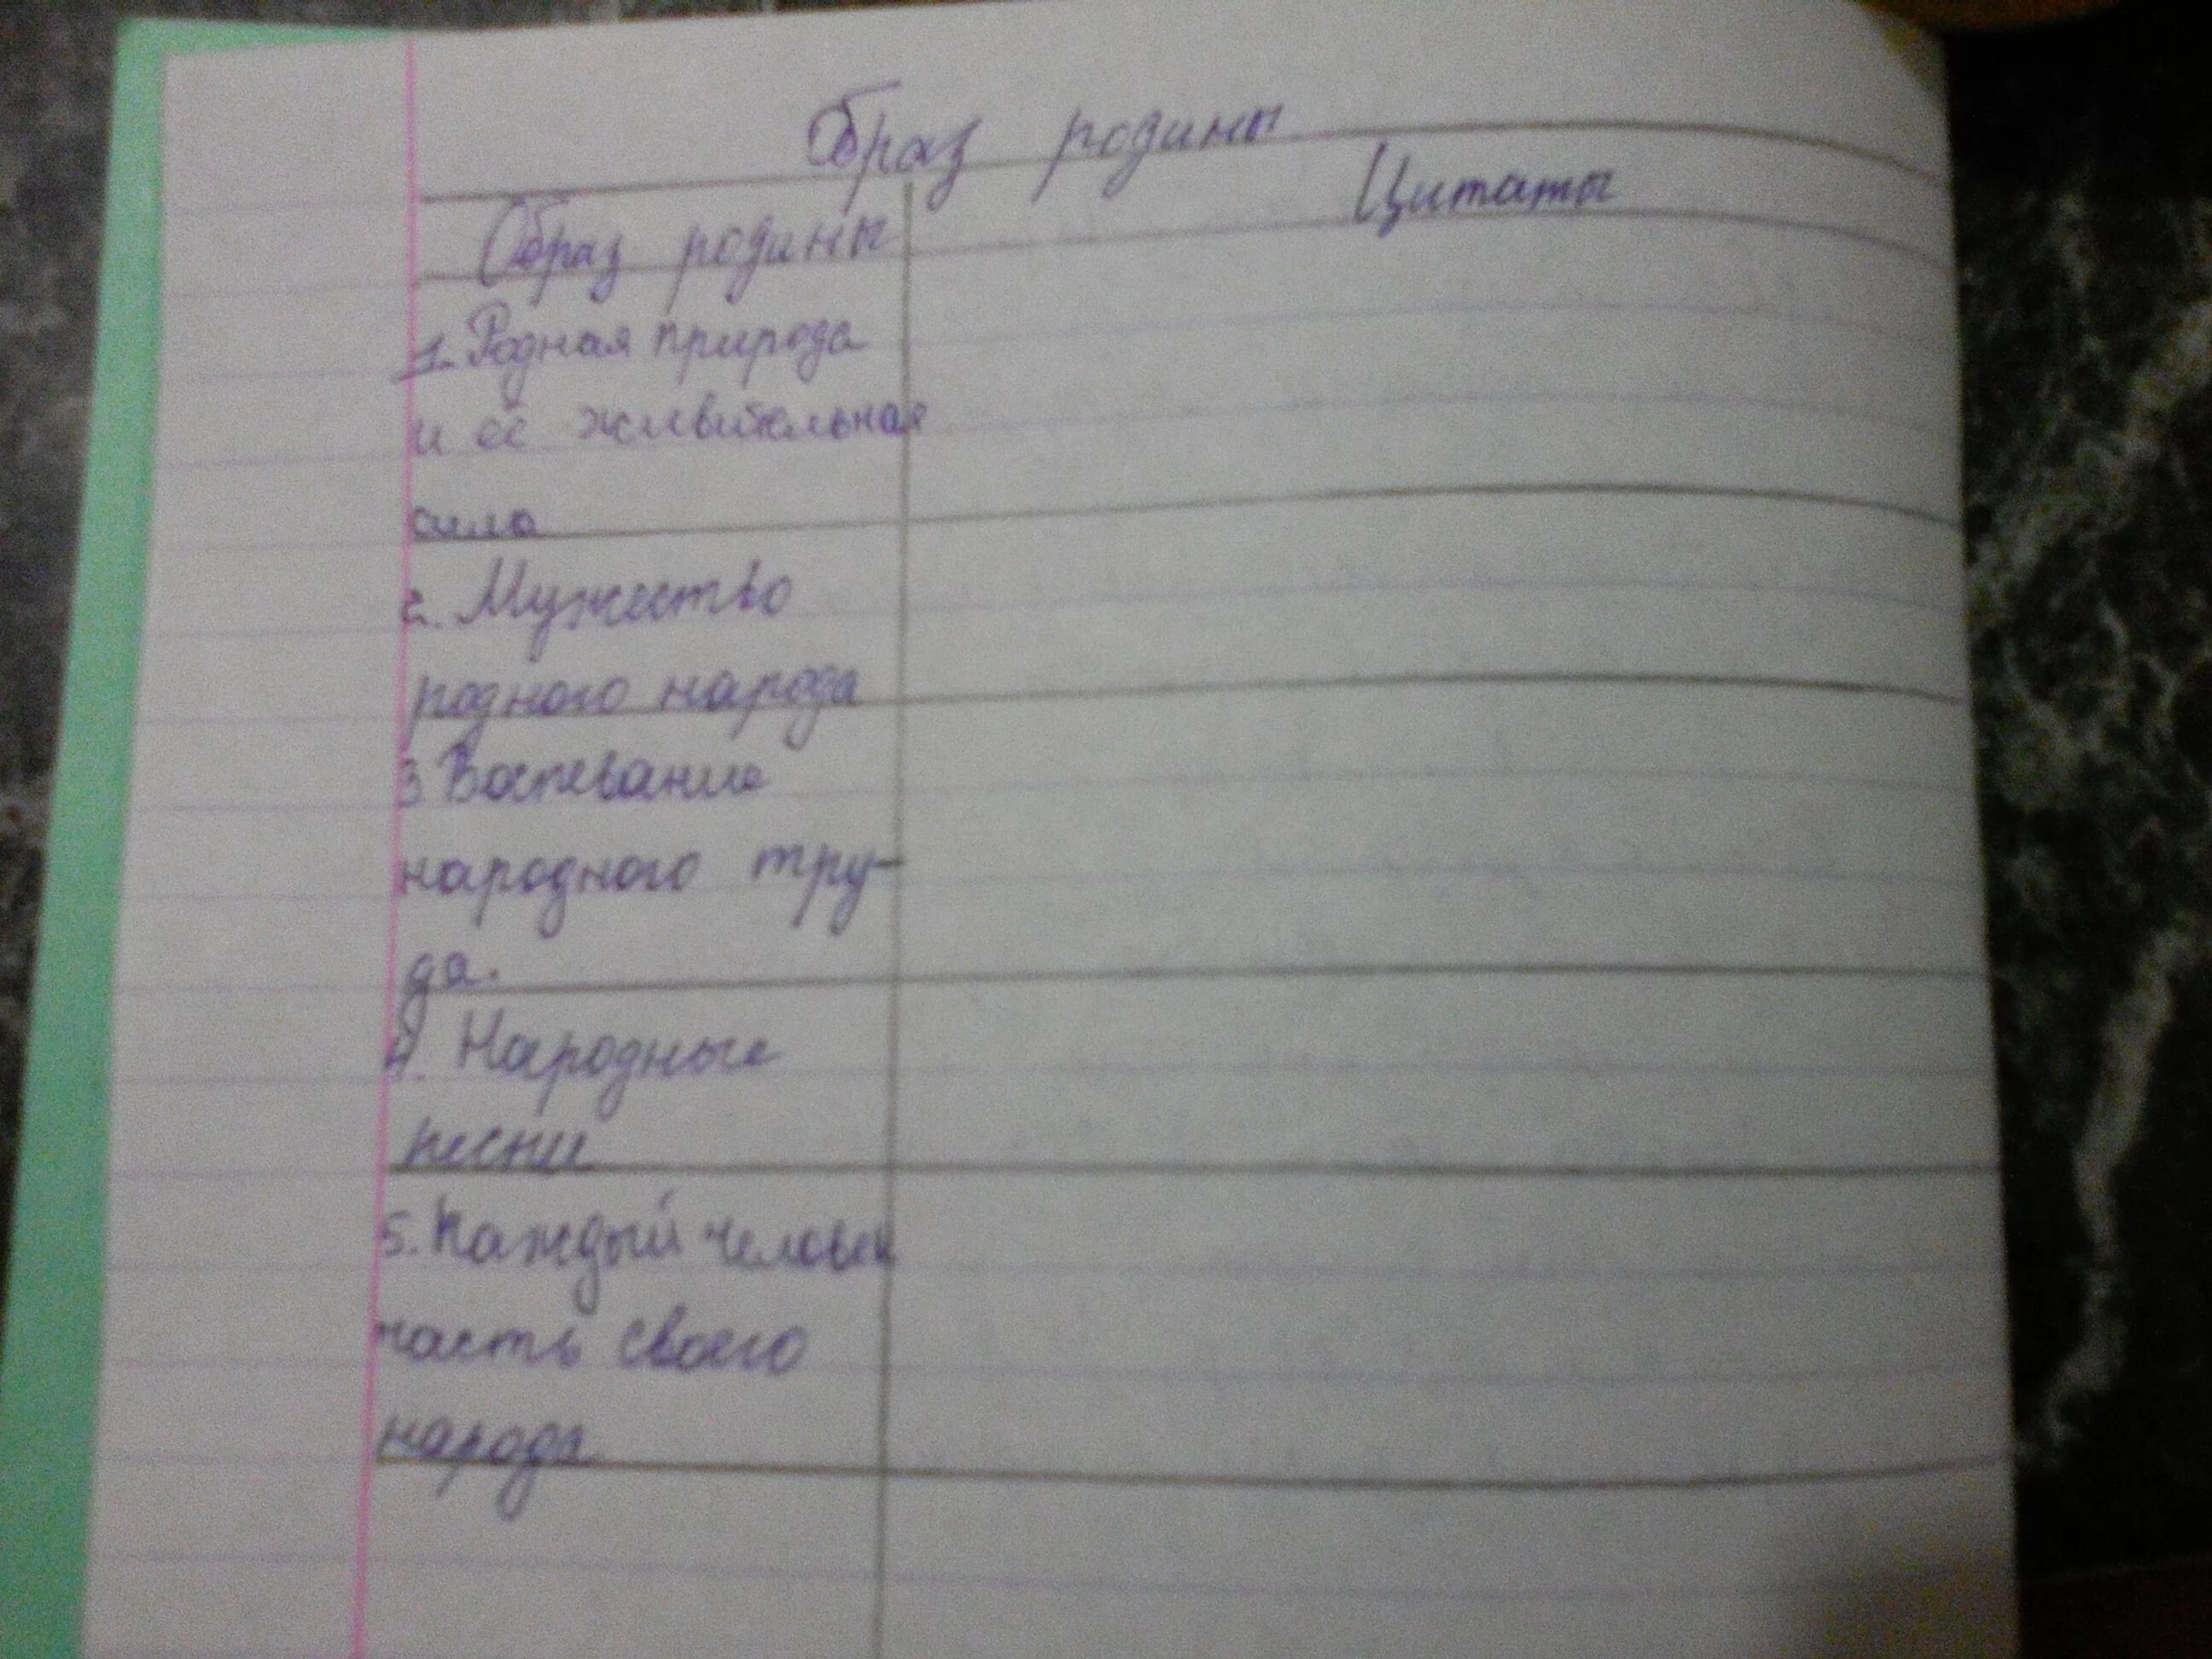 Образ родины
Образ родины Цитаты
1. Родная природа
и её живительная
сила
2. Мужество
родного народа
3 Воспевание
народного тру-
да.
4. Народные
песни
5. Каждый человек
часть своего
народа